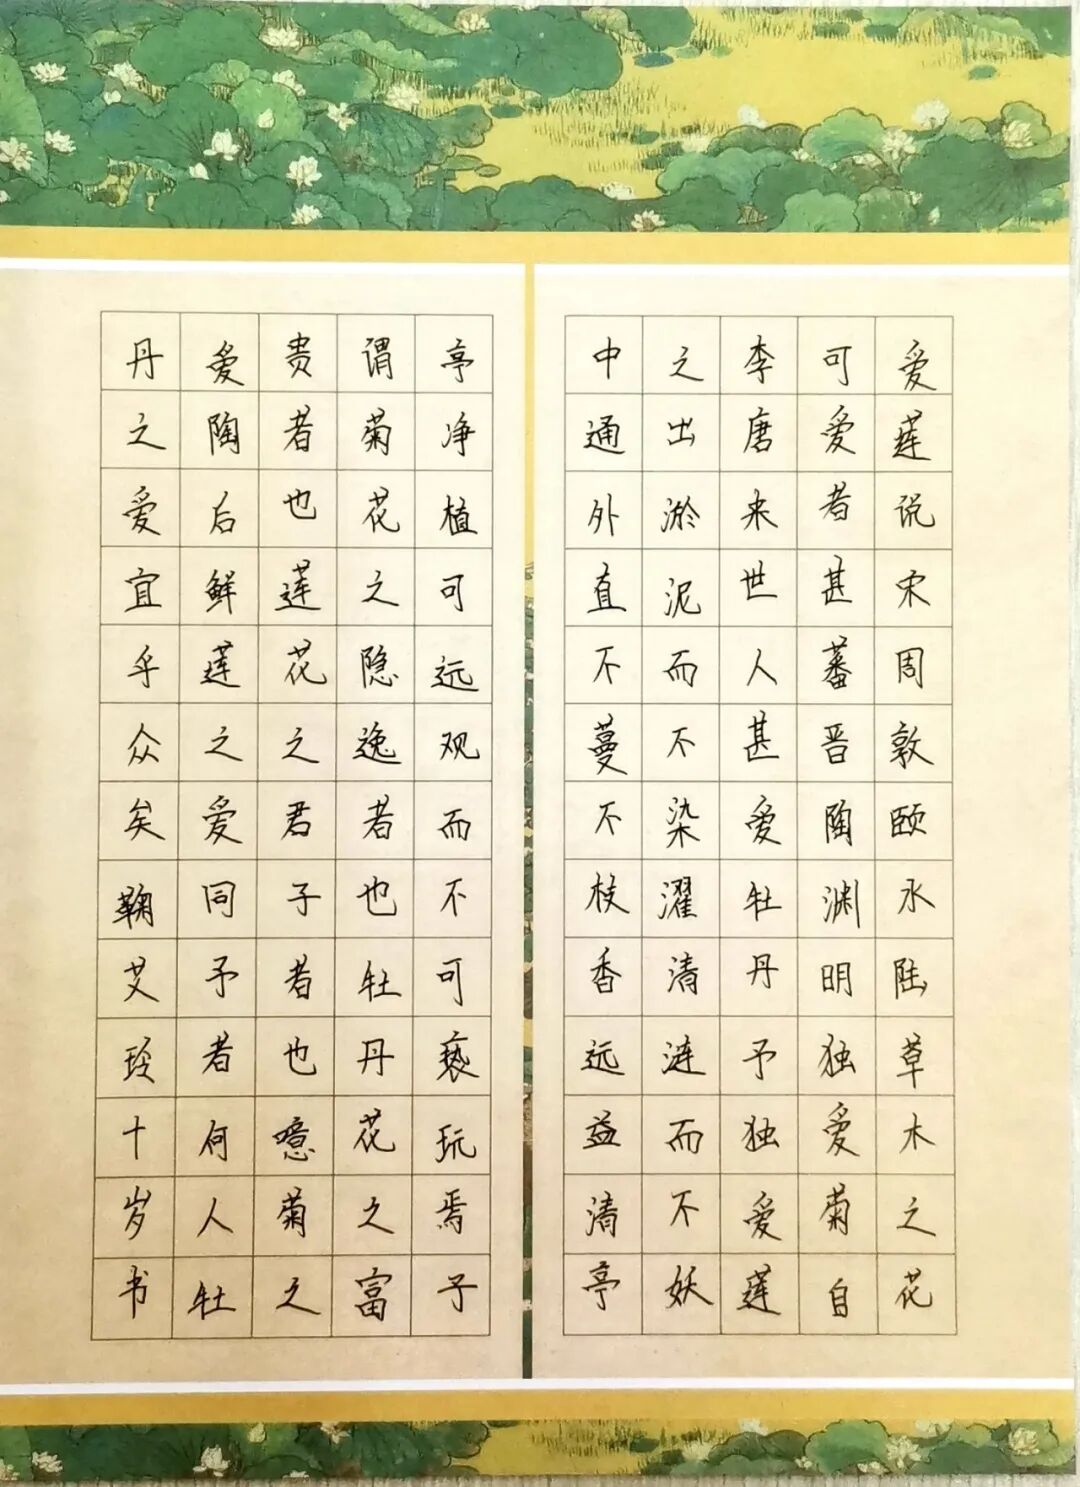 爱莲说宋周敦颐水陆草木之花
可爱者甚蕃晋陶渊明独爱菊自
李唐来世人甚爱牡丹予独爱莲
之出淤泥而不染濯清涟而不妖
中通外直不蔓不枝香远益清亭
亭净植可远观而不可亵玩焉予
谓菊花之隐逸者也牡丹花之富
贵者也莲花之君子者也噫菊之
爱陶后鲜莲之爱同予者何人牡
丹之爱宜乎众矣鞠艾玲十岁书